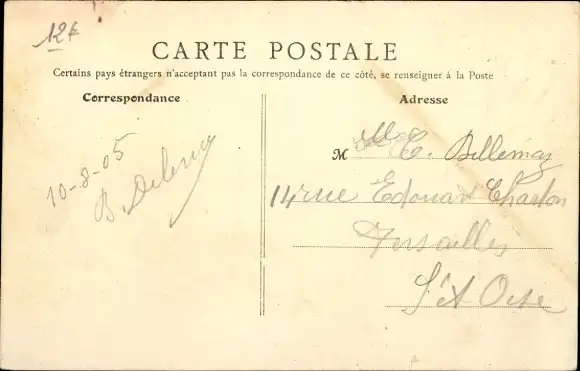 12f
CARTE POSTALE
Certains pays étrangers n'acceptant pas la correspondance de ce côté, se renseigner à la Poste
Correspondance
Adresse
10-8-05
B.
M Mlle C.
14 rue Edouard Charton
Versailles
S et Oise